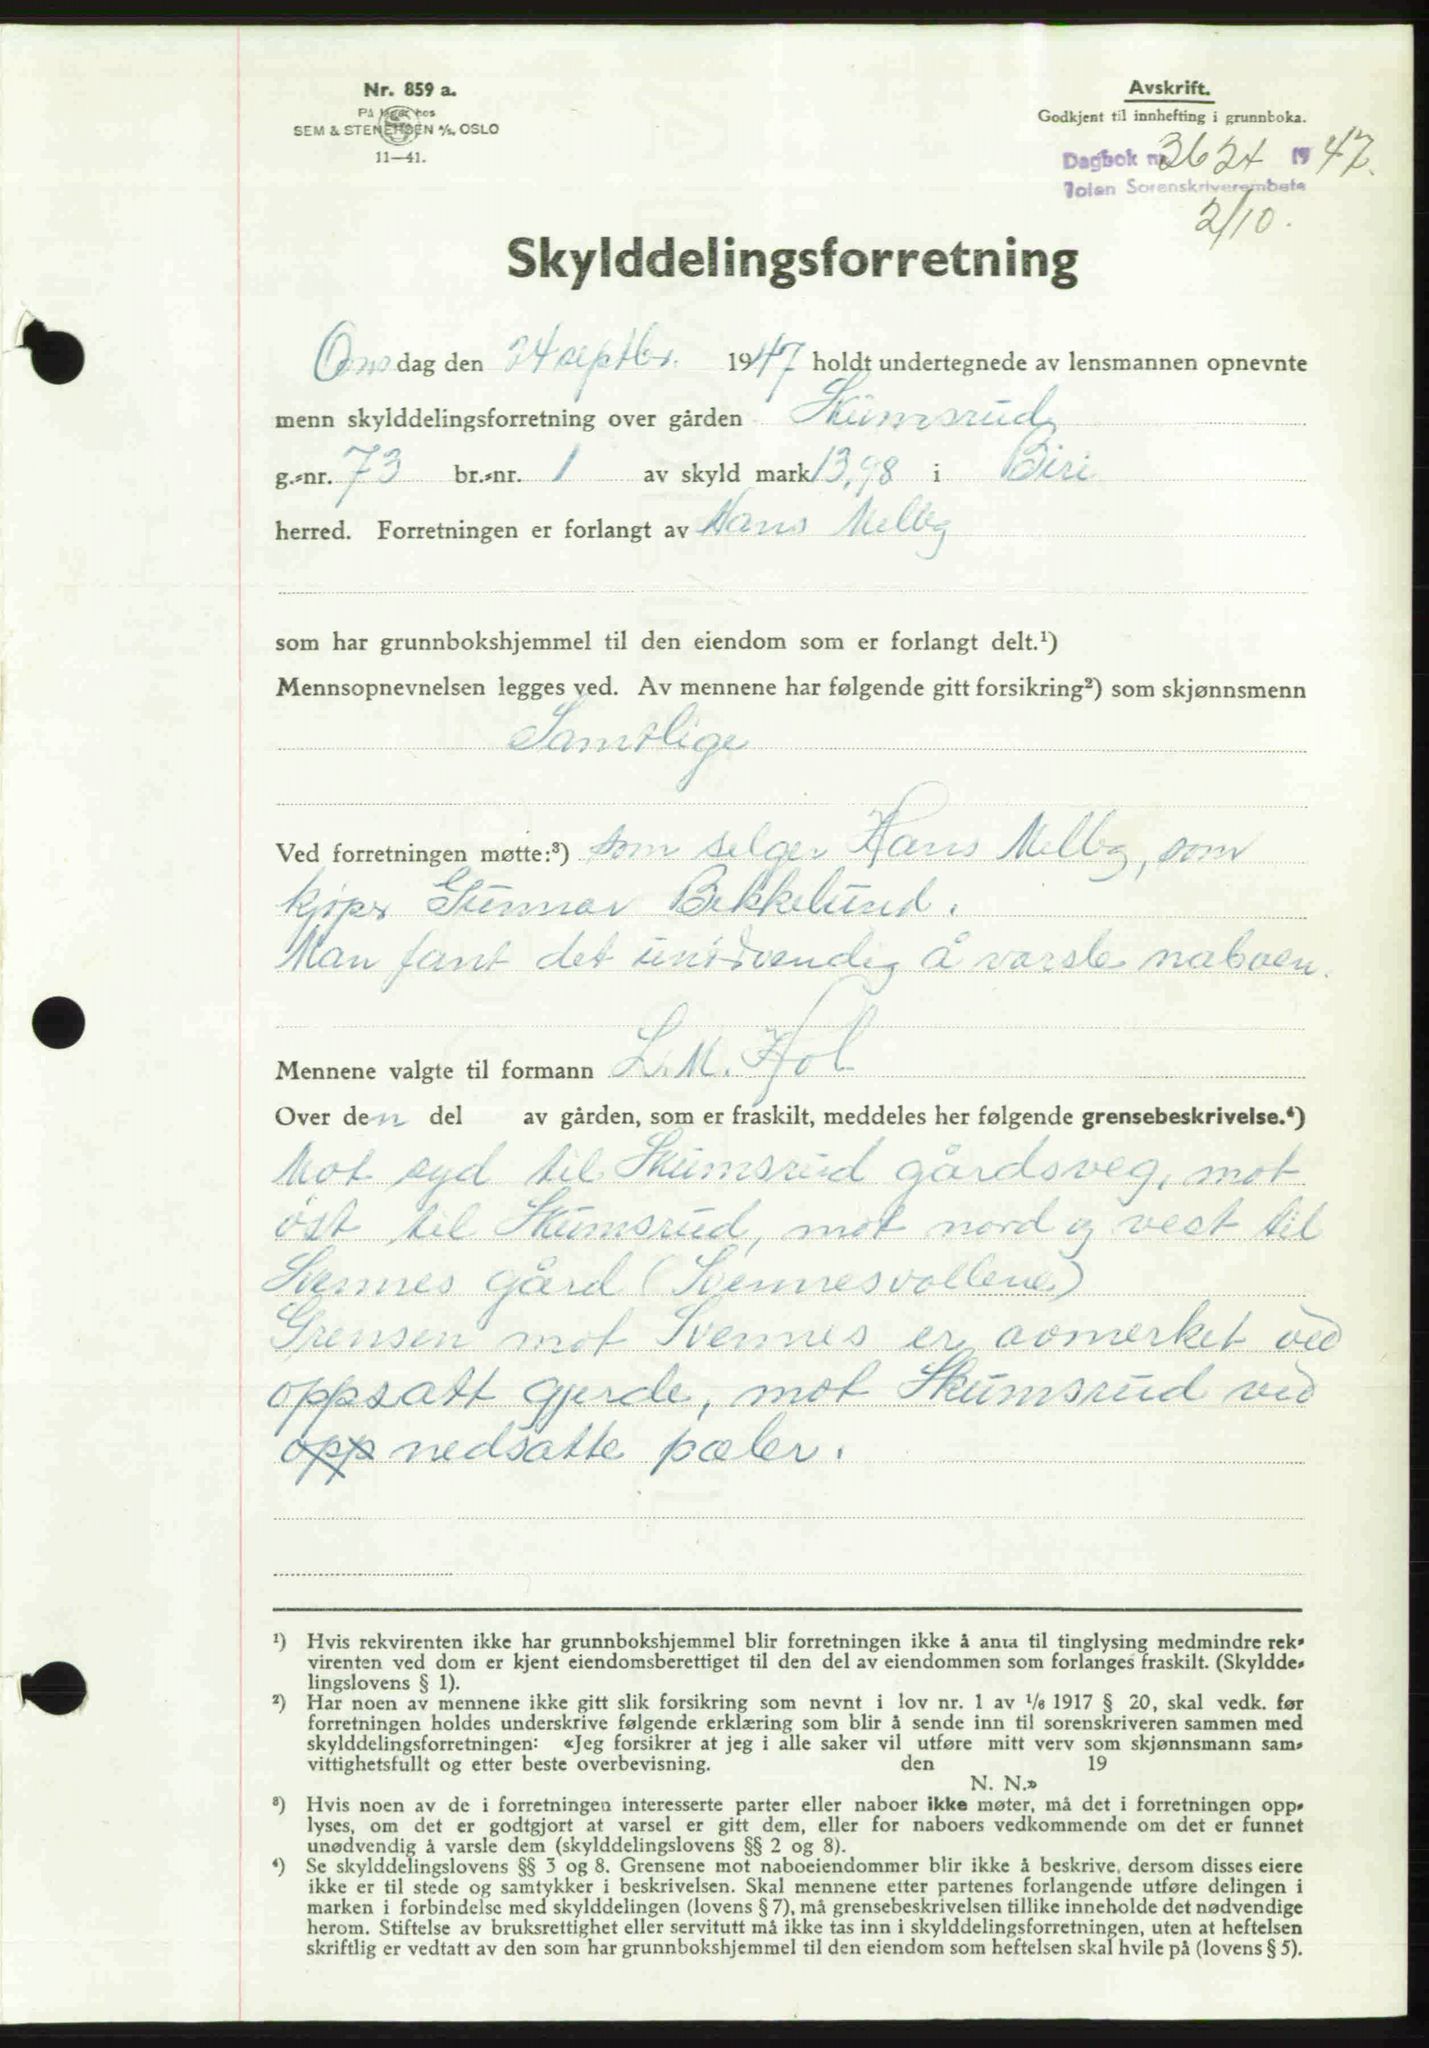 Nr. 859 a.
På lager hos
SEM & STENERSEN A/S, OSLO
11—41.
Avskrift.
Godkjent til innhefting i grunnboka.
Dagbok nr. 3624 1947.
Toten Sorenskriverembete
2/10.
Skylddelingsforretning
Onsdag den 24 septbr. 1947 holdt undertegnede av lensmannen opnevnte
menn skylddelingsforretning over gården Skumsrud
g.-nr. 73 br.-nr. 1 av skyld mark 13,98 i Biri
herred. Forretningen er forlangt av Hans Melby
som har grunnbokshjemmel til den eiendom som er forlangt delt.¹)
Mennsopnevnelsen legges ved. Av mennene har følgende gitt forsikring²) som skjønnsmenn
Samtlige
Ved forretningen møtte:³) som selger Hans Melby, som
kjøper Gunnar Bekkelund.
Man fant det unødvendig å varsle naboen.
Mennene valgte til formann L. M. Hol
Over den del av gården, som er fraskilt, meddeles her følgende grensebeskrivelse.⁴)
Mot syd til Skumsrud gårdsveg, mot
øst til Skumsrud, mot nord og vest til
Svennes gård (Svennesvollene)
Grensen mot Svennes er avmerket ved
oppsatt gjerde, mot Skumsrud ved
opp nedsatte pæler.
¹) Hvis rekvirenten ikke har grunnbokshjemmel blir forretningen ikke å anta til tinglysing medmindre rek-
virenten ved dom er kjent eiendomsberettiget til den del av eiendommen som forlanges fraskilt. (Skyldde-
lingslovens § 1).
²) Har noen av mennene ikke gitt slik forsikring som nevnt i lov nr. 1 av 1/6 1917 § 20, skal vedk. før
forretningen holdes underskrive følgende erklæring som blir å sende inn til sorenskriveren sammen med
skylddelingsforretningen: «Jeg forsikrer at jeg i alle saker vil utføre mitt verv som skjønnsmann sam-
vittighetsfullt og etter beste overbevisning. den 19
N. N.»
³) Hvis noen av de i forretningen interesserte parter eller naboer ikke møter, må det i forretningen opp-
lyses, om det er godtgjort at varsel er gitt dem, eller for naboers vedkommende om det er funnet
unødvendig å varsle dem (skylddelingslovens §§ 2 og 8).
⁴) Se skylddelingslovens §§ 3 og 8. Grensene mot naboeiendommer blir ikke å beskrive, dersom disses eiere
ikke er til stede og samtykker i beskrivelsen. Skal mennene etter partenes forlangende utføre delingen i
marken i forbindelse med skylddelingen (lovens § 7), må grensebeskrivelsen tillike inneholde det nødvendige
herom. Stiftelse av bruksrettighet eller servitutt må ikke tas inn i skylddelingsforretningen, uten at heftelsen
skriftlig er vedtatt av den som har grunnbokshjemmel til den eiendom som heftelsen skal hvile på (lovens § 5).